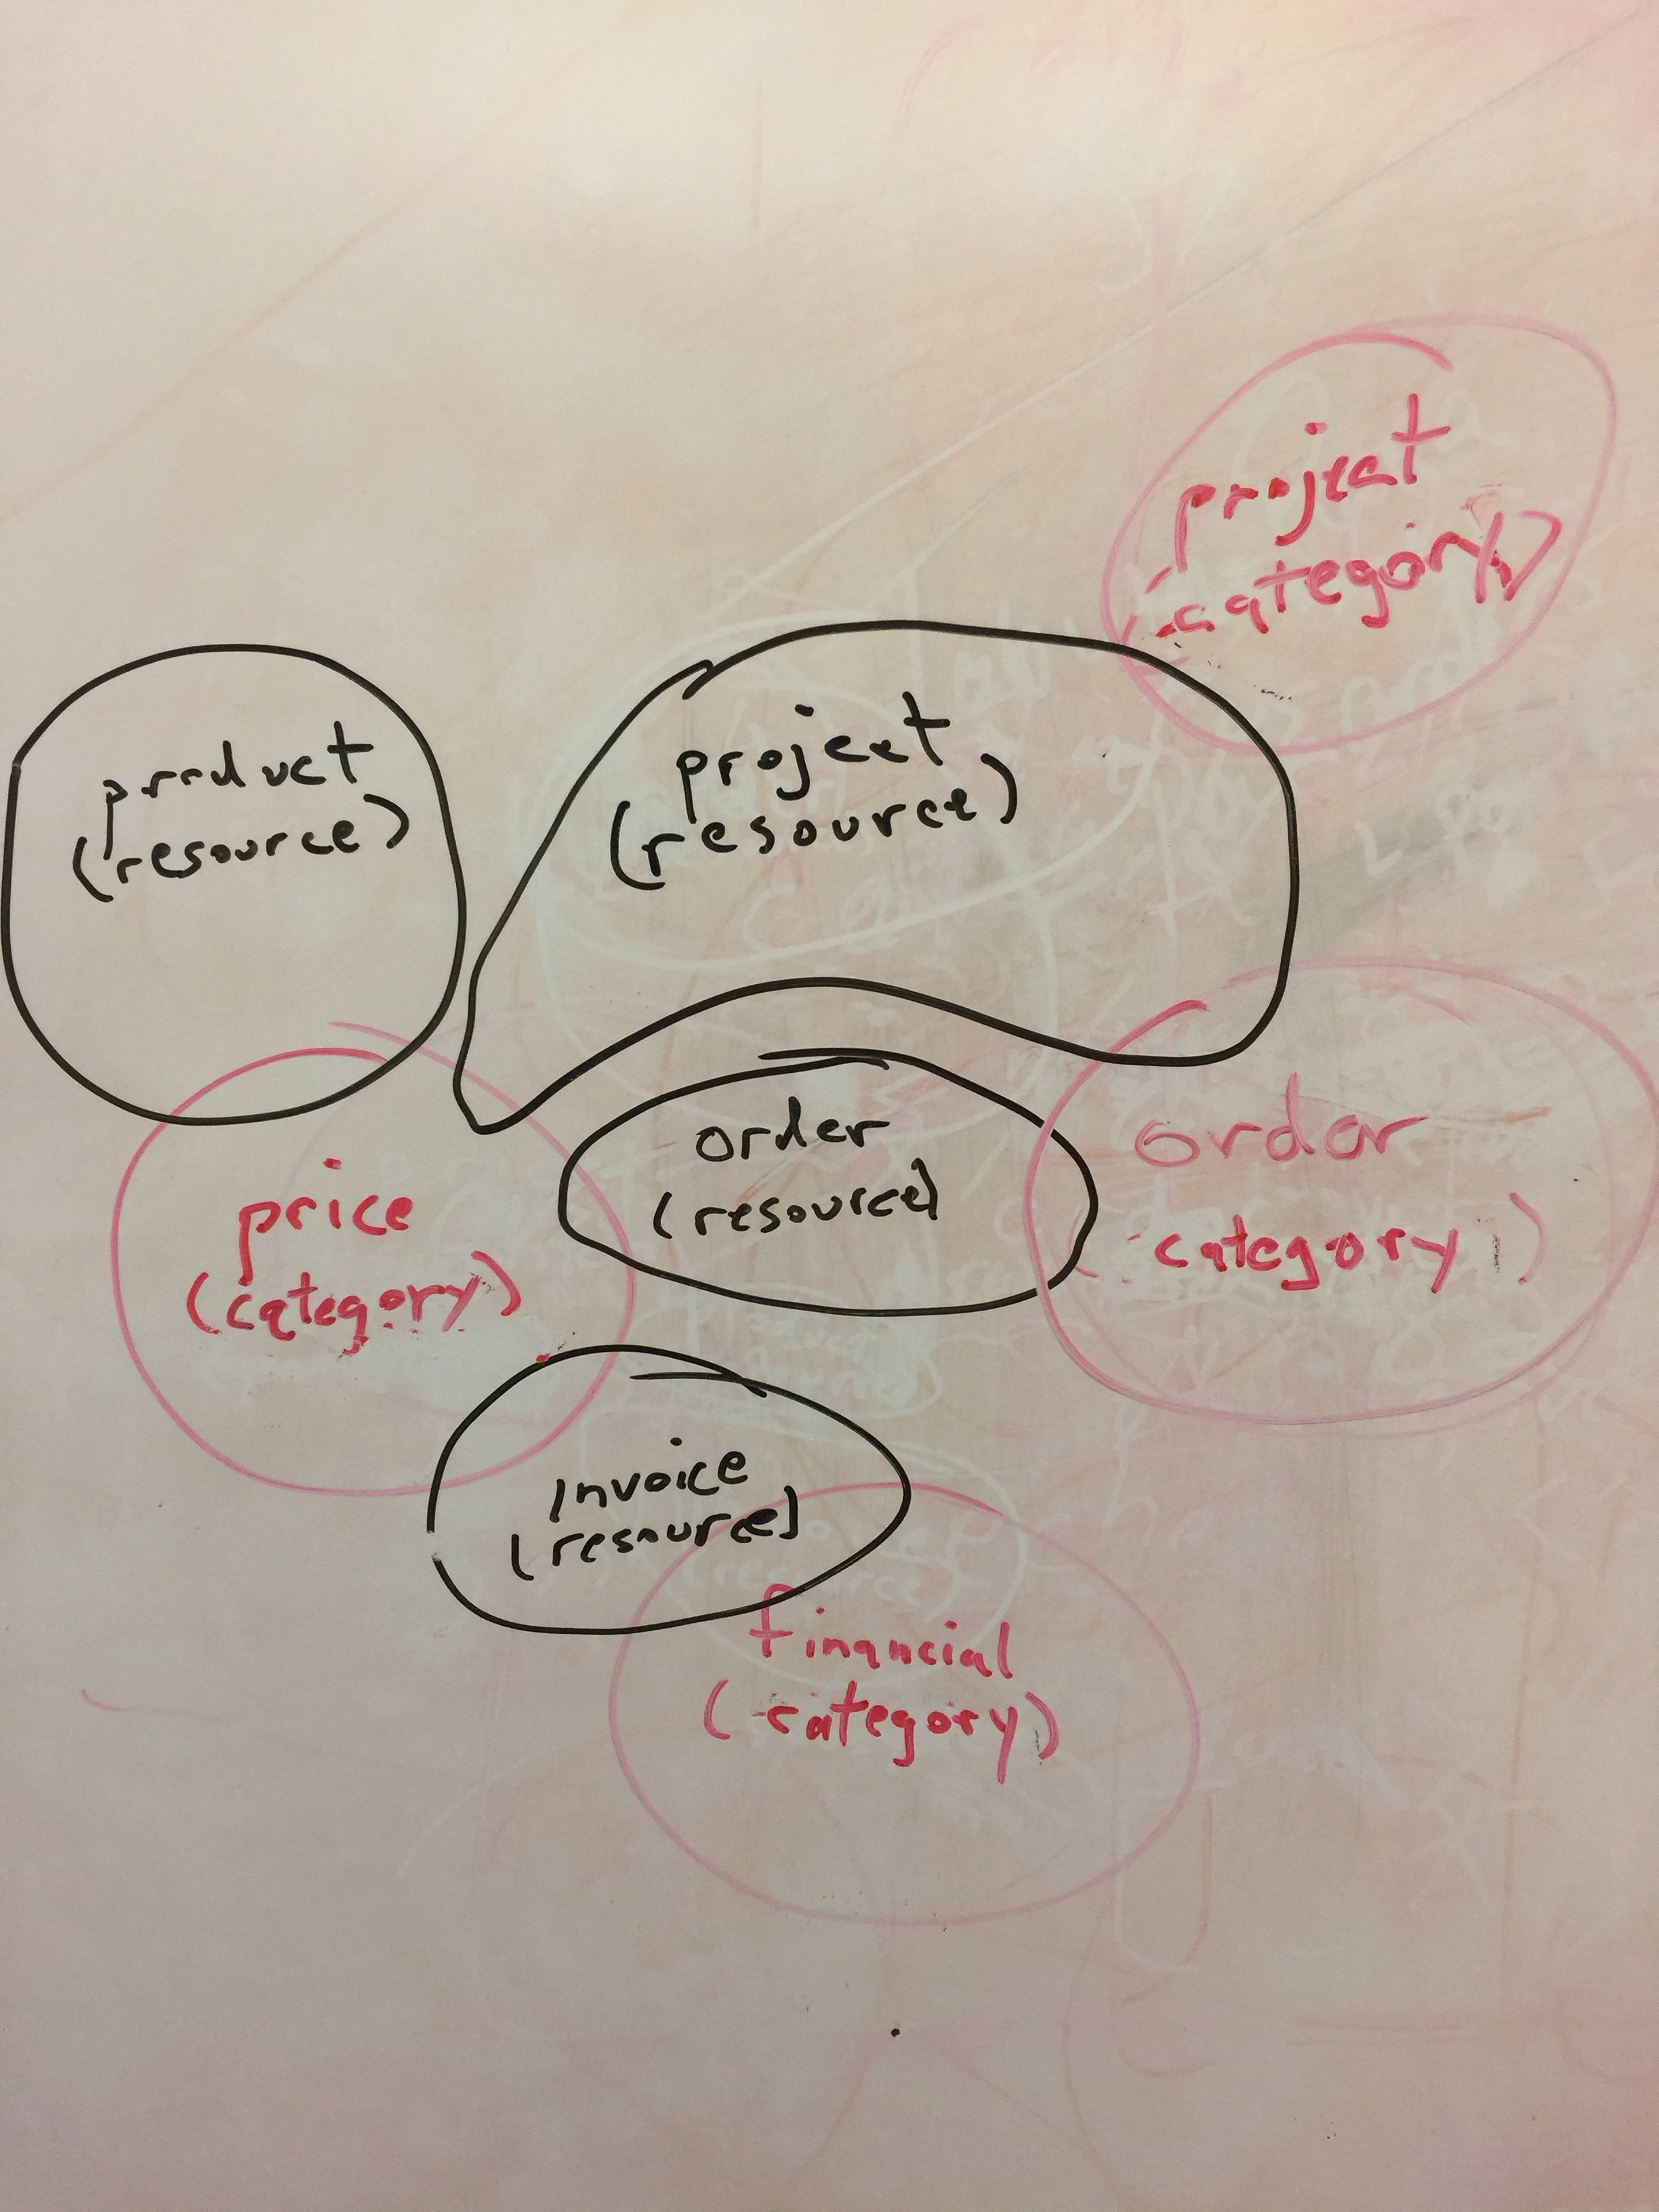 project
(category)
product
(resource)
project
(resource)
order
(resource)
order
category )
price
(category)
invoice
(resource)
financial
(category)